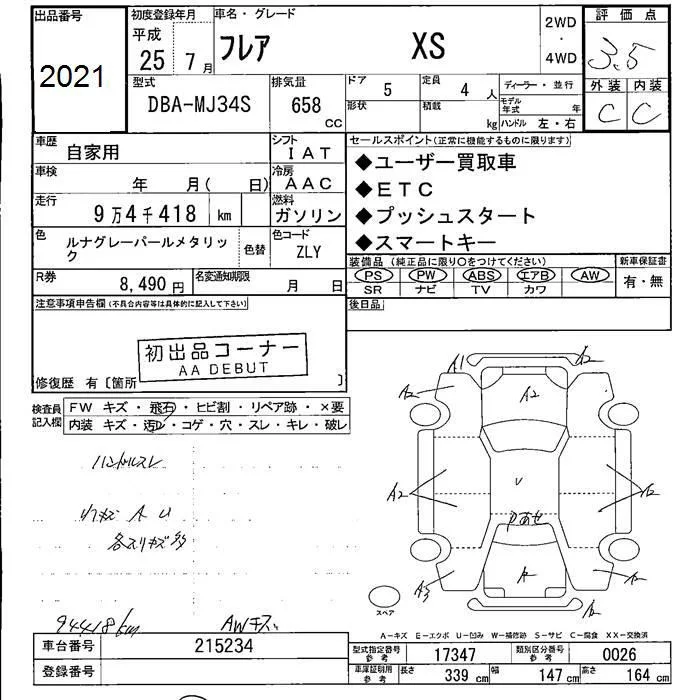 出品番号 初度登録年月 車名・グレード 2WD 評価点
2021 平成 25 年 7月 フレア XS ・ 4WD 3.5
型式 DBA-MJ34S 排気量 658 CC ドア 5 定員 4 人 ディーラー・並行 外装 内装
形状 積載 kg モデル年式 年 ハンドル 左・右 C C
車歴 自家用 シフト IAT セールスポイント(正常に機能するものに限ります)
◆ユーザー買取車
車検 年 月( 日) 冷房 AAC ◆ETC
走行 9万4千418 km 燃料 ガソリン ◆プッシュスタート
色 ルナグレーパールメタリック 色替 色コード ZLY ◆スマートキー
装備品(純正品に限り○をつけてください) 新車保証書
R券 8,490円 名変通知期限 月 日 PS PW ABS エアB AW 有・無
SR ナビ TV カワ
注意事項申告欄(不具合内容等は具体的に記入して下さい) 後日品
初出品コーナー
AA DEBUT
修復歴 有〔箇所 〕
検査員記入欄 FW キズ・飛石・ヒビ割・リペア跡・×要
内装 キズ・汚レ・コゲ・穴・スレ・キレ・破レ
ハンドルスレ
リアキズ A U
各スリキズ多
94418km AWキズ
A1 A2
A2 A2
A2 U A2
A2
A3
スペア
A-キズ E-エクボ U-凹み W-補修跡 S-サビ C-腐食 XX-交換済
車台番号 215234 型式指定番号 参考 17347 類別区分番号 参考 0026
登録番号 車庫証明用 参考 長さ 339 cm 幅 147 cm 高さ 164 cm